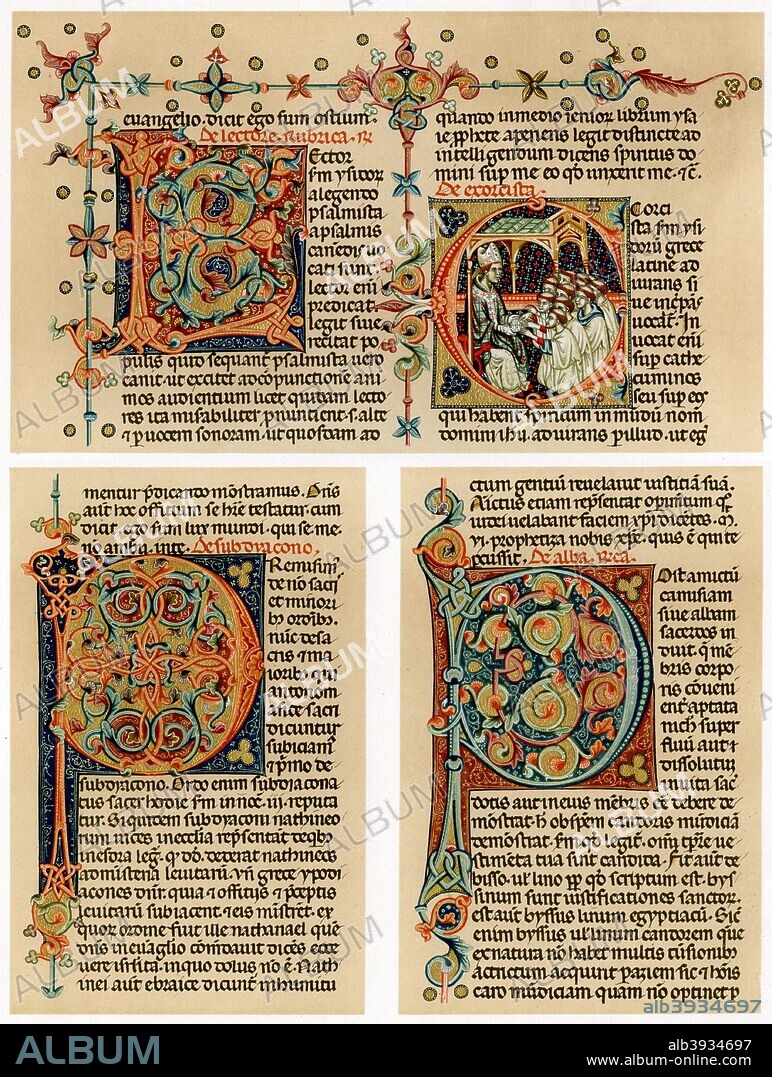 euangelio. dicit ego sum ostium.
De lectore. rubrica. R
Lector
sm ysidor
a legendo
psalmista
a psalmis
canendis uo
cati sunt.
lector eni
predicat.
legit siue
recitat po
pulis quid sequant psalmista uero
canit ut excitet ad conpunctione ani
mos audientium licet quidam lecto
res ita misabiliter pnuntient. s. alte
& p uocem sonoram. ut quosdam ad
quando in medio senior librum ysa
ie pphete aperiens legit distincte ad
intelligendum dicens spiritus do
mini sup me eo qd unxerit me. &c.
De exorcista.
Exorci
sta sm ysi
dorum grece
latine ad
iurans si
ue increpas
uocat. In
uocat eni
sup cathe
cuminos
seu sup eos
qui habent spiritum inmundu nom
domini ihu. adiurans p illud. ut eg
mentur pdicando monstramus. Dns
aut hoc officium se here testatur. cum
dicit ego sum lux mundi. qui se me.
no amb. i. inte. De subdiacono.
Remissim
de no sacris
et minori
bus ordib.
nuc de sa
cris & ma
iorib. qui
antonom
asice sacri
dicuntur
subiciam
& pmo de
subdiacono. Ordo enim subdiacona
tus sacer hodie sm innoc. iii. reputa
tur. Siquidem subdiaconi nathineo
rum uices in ecclia repsentat de qb.
in esdra leg. qd dd. dederat nathineos
ad ministeria leuitaru. Vn grece ypodi
acones dnr. quia & offitiis & pceptis
leuitaru subiacent. eis mistret. ex
quor ordine fuit ille nathanael que
dns in euaglio comdauit dices ecce
uere isrlita. in quo dolus no e. Nath
inei aut ebraice dicunt inhumilitu
ctum gentiu reuelauit iustitia sua.
Amictus etiam repsentat opimentum
iudei uelabant faciem xpi dicetes. M.
vi. prophetiza nobis xpe. quis e qui te
pcussit. De alba. Rca.
Post amictu
camisiam
siue albam
sacerdos in
duit. q me
bris corpo
ris conueni
ent aptata
nich super
fluu aut
dissolutu
in uita sac
dotis aut in eius mebris ee debere de
mostrat. h ob spem candoris mundicia
demostrat. sm qd legit. omi tpre ue
stimeta tua sint candida. Fit aut de
bisso. ul lino pp qd scriptum est. bys
sinum sunt iustificationes sanctor.
est aut byssus linum egyptiacu. Sic
enim byssus ul linum candorem que
ex natura no habet multis tusionibus
actritum acquirit p aziem sic & hois
caro mundiciam quam non optinet p
ALBUM
alb3934697
ALBUM
alb3934697
www.album-online.com